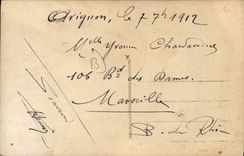 Avignon, le 7 7bre 1912
Melle Yvonne
106 Bd des Dames
Marseille
B. du Rhône
Souvenir